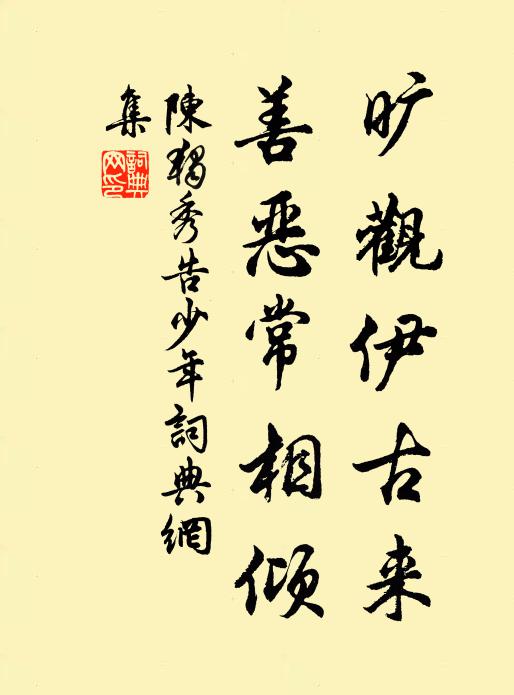 旷觀伊古来
善惡常相倾
陳獨秀告少年詞典網
集
詞典網印